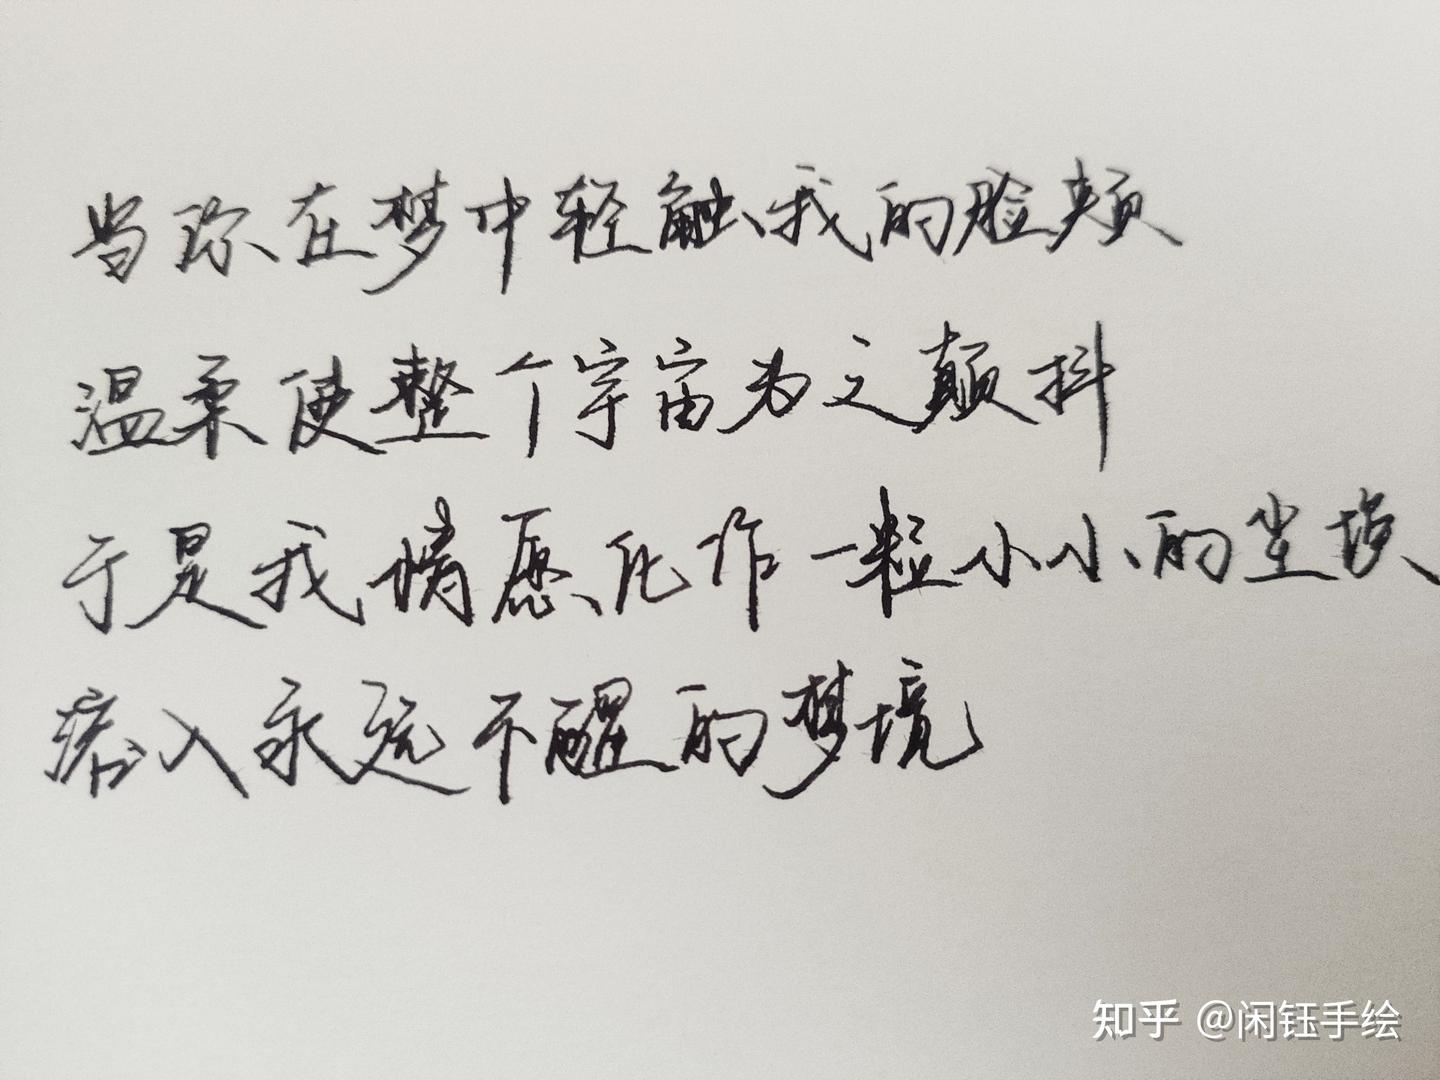 当你在梦中轻触我的脸颊
温柔使整个宇宙为之颠抖
于是我情愿化作一粒小小的尘埃
落入永远不醒的梦境
知乎 @闲钰手绘